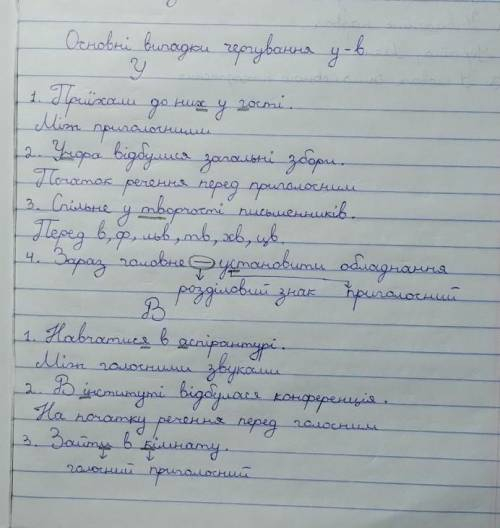 Основні випадки чергування у-в
У
1. Приїхали до них у гості.
Між приголосними
2. Учора відбулися загальні збори.
Початок речення перед приголосним
3. Спільне у творчості письменників.
Перед в, ф, льв, тв, хв, цв.
4. Зараз головне – установити обладнання
розділовий знак приголосний
В
1. Навчатися в аспірантурі.
Між голосними звуками
2. В інституті відбулася конференція.
На початку речення перед голосним
3. Зайти в кімнату.
голосний приголосний